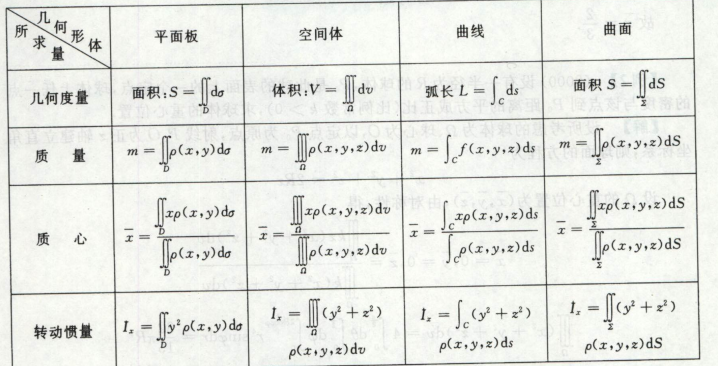 所求量 几何形体 平面板 空间体 曲线 曲面
几何度量 面积:S=∬_D dσ 体积:V=∭_Ω dv 弧长 L=∫_C ds 面积 S=∬_Σ dS
质 量 m=∬_D ρ(x,y)dσ m=∭_Ω ρ(x,y,z)dv m=∫_C f(x,y,z)ds m=∬_Σ ρ(x,y,z)dS
质 心 x̄=∬_D xρ(x,y)dσ / ∬_D ρ(x,y)dσ x̄=∭_Ω xρ(x,y,z)dv / ∭_Ω ρ(x,y,z)dv x̄=∫_C xρ(x,y,z)ds / ∫_C ρ(x,y,z)ds x̄=∬_Σ xρ(x,y,z)dS / ∬_Σ ρ(x,y,z)dS
转动惯量 I_x=∬_D y²ρ(x,y)dσ I_x=∭_Ω (y²+z²) I_x=∫_C (y²+z²) I_x=∬_Σ (y²+z²)
ρ(x,y,z)dv ρ(x,y,z)ds ρ(x,y,z)dS